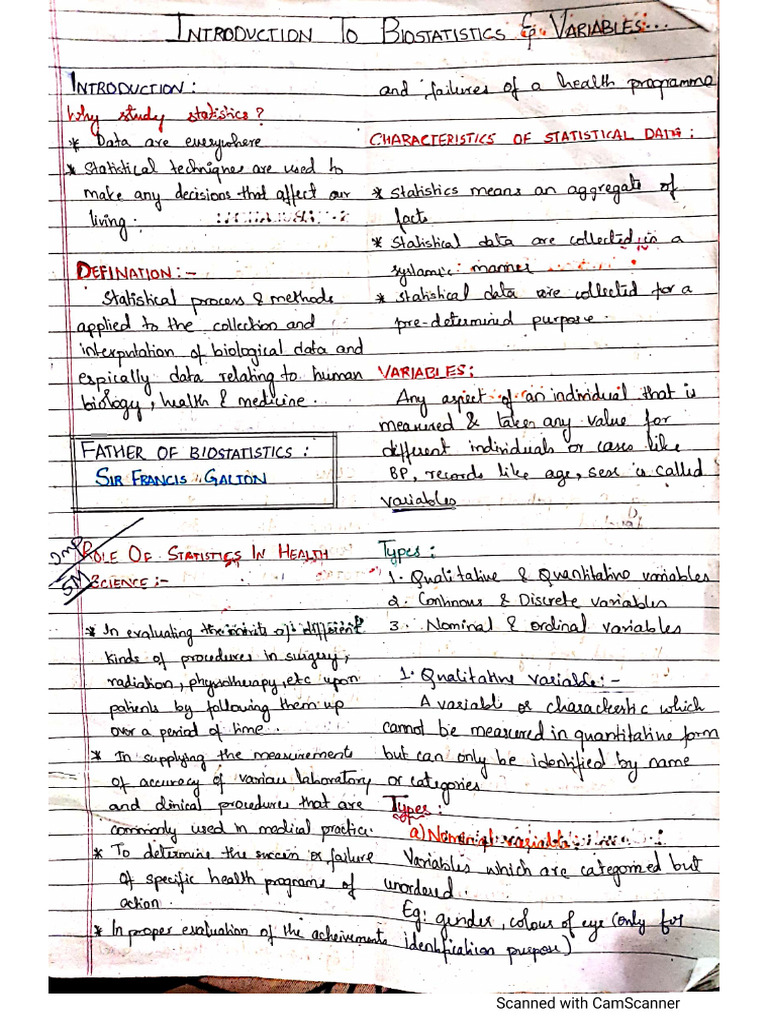 INTRODUCTION TO BIOSTATISTICS & VARIABLES...
INTRODUCTION:
Why study statistics?
* Data are everywhere
* Statistical techniques are used to
make any decisions that affect our
living.
DEFINATION:-
Statistical process & methods
applied to the collection and
interputation of biological data and
espically data relating to human
biology, health & medicine.
FATHER OF BIOSTATISTICS:
SIR FRANCIS GALTON
Imp
5M
ROLE OF STATISTICS IN HEALTH
SCIENCE:-
* In evaluating the merits of different
kinds of procedures in surgery,
radiation, physiotherapy, etc upon
patients by following them up
over a period of time.
* In supplying the measurements
of accuracy of various laboratory
and clinical procedures that are
commonly used in medical practice.
* To determine the success or failure
of specific health programs of
action.
* In proper evaluation of the acheivements
and failures of a health programme
CHARACTERISTICS OF STATISTICAL DATA:
* Statistics means an aggregate of
facts
* Statistical data are collected in a
systamic manner
* Statistical data are collected for a
pre-determined purpose.
VARIABLES:
Any aspect of an individual that is
measured & takes any value for
different individuals or cases like
BP, records like age, sex is called
variables
Types:
1. Qualitative & Quantitative variables
2. Continous & Discrete variables
3. Nominal & ordinal variables
1. Qualitative variable:-
A variable or characteristic which
cannot be measured in quantitative form
but can only be identified by name
or categories
Types:
a) Nominal variable
Variables which are categorized but
unordered.
Eg: gender, colour of eye (only for
identification purpose)
Scanned with CamScanner